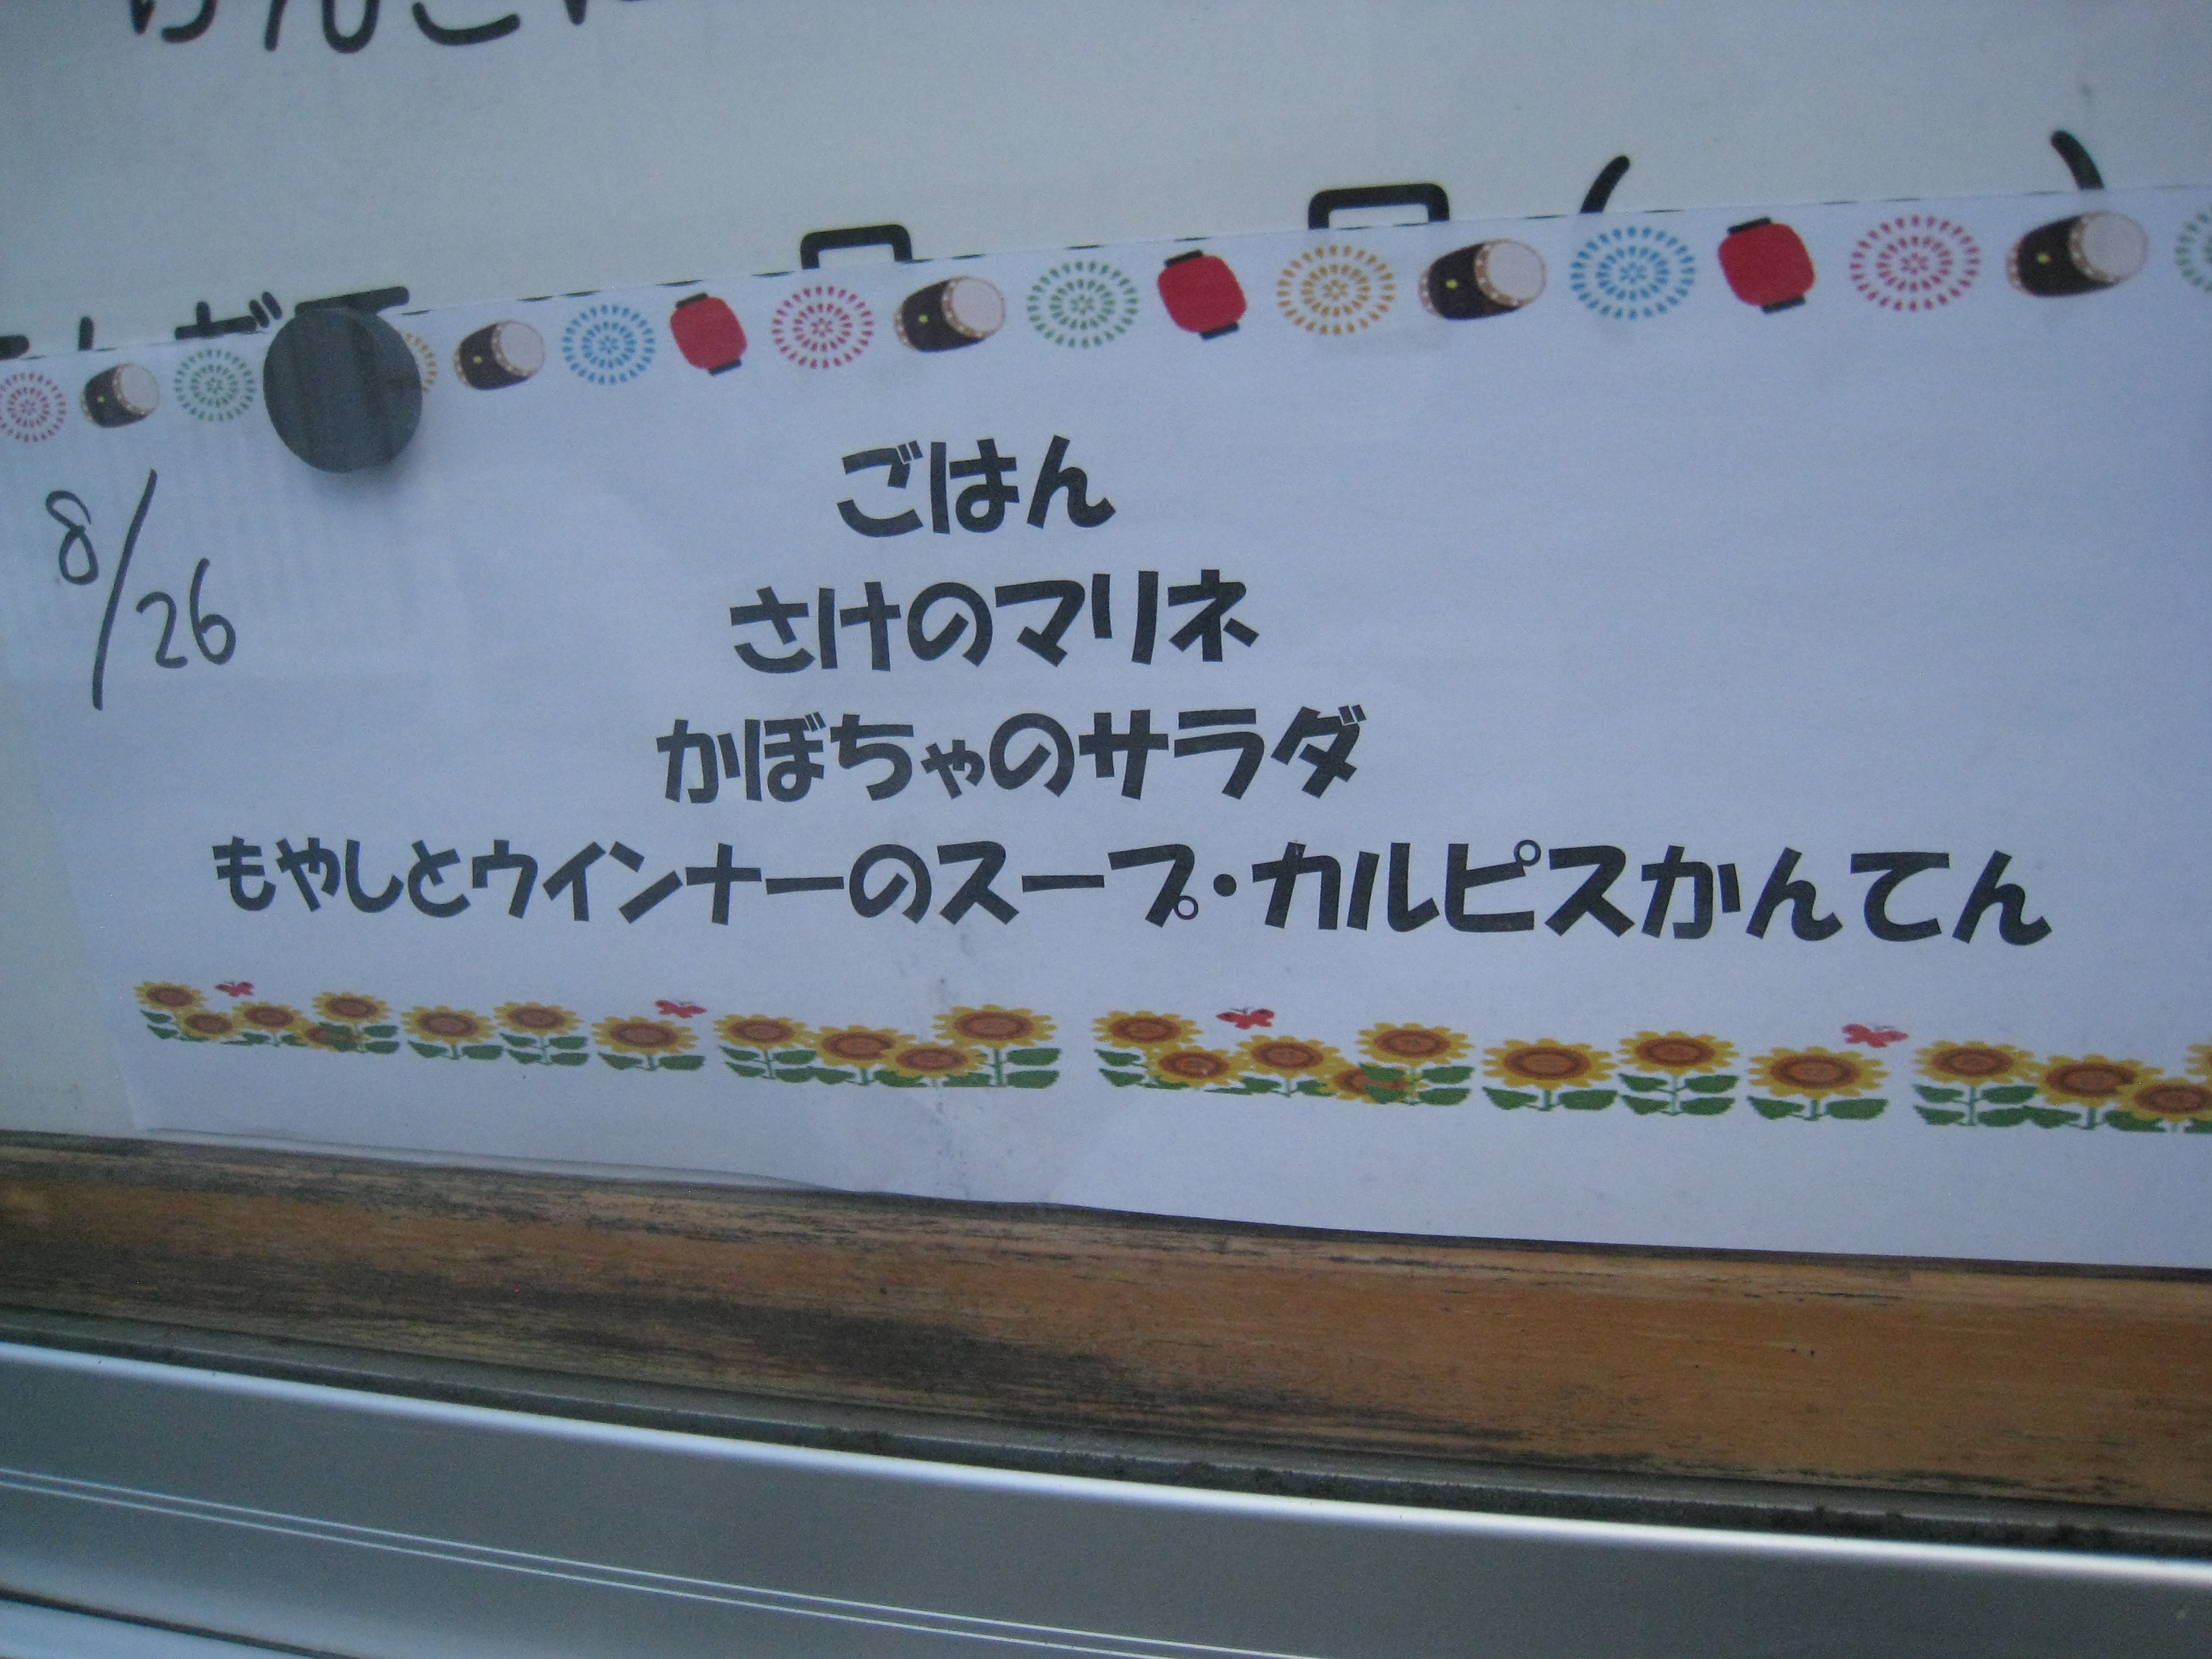 8/26
ごはん
さけのマリネ
かぼちゃのサラダ
もやしとウインナーのスープ・カルピスかんてん